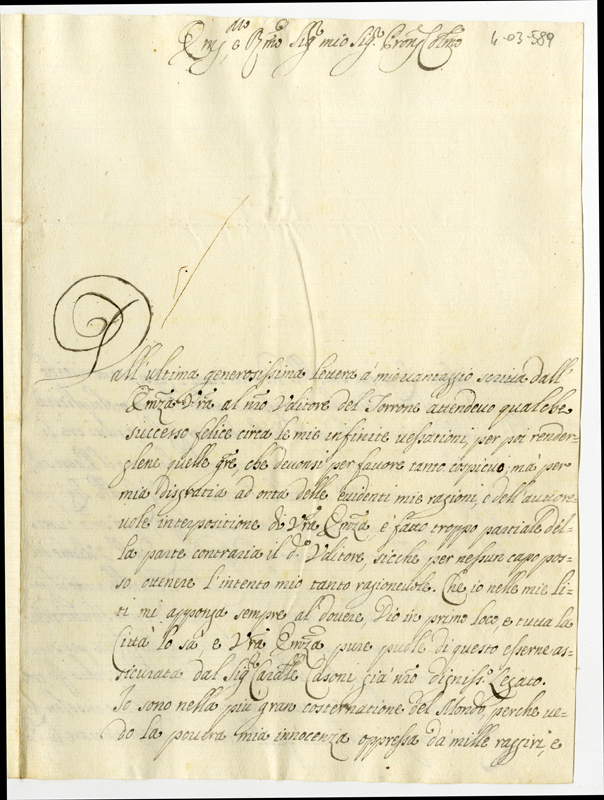 Em.mo e R.mo Sig.r mio Sig.r e Pron. Col.mo
4-03-589
Dall'ultima generosissima lettera à mio vantaggio scritta dall'
Em̃za V̄r̄a al n̄ro Uditore del Torrone attendevo qualche
successo felice circa le mie infinite vessationi, per poi render=
glene quelle gr̄e, che devonsi per favore tanto cospicuo; mà per
mia disgratia ad onta delle evidenti mie ragioni, e dell'autore=
vole interpositione di V̄r̄a Em̃za, è fatto troppo partiale del=
la parte contraria il d.o Uditore, sicche per nessun capo pos=
so ottenere l'intento mio tanto ragionevole. Che io nelle mie li=
ti mi apponga sempre al dovere, Dio in primo loco, e tutta la
Città lo sà, e V̄r̄a Em̃za pure puole di questo esserne as=
sicurata dal Sig.r Card.le Casoni già n̄ro digniss.o Legato.
Io sono nella più gran costernatione del Mondo, perche ve=
do la povera mia innocenza oppressa dà mille raggiri, e